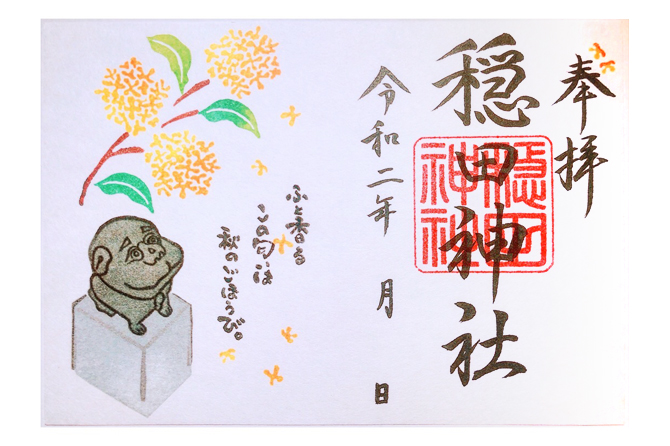 奉拝
穏田神社
穏田神社
令和二年 月 日
ふと香る
この匂いは
秋のごほうび。